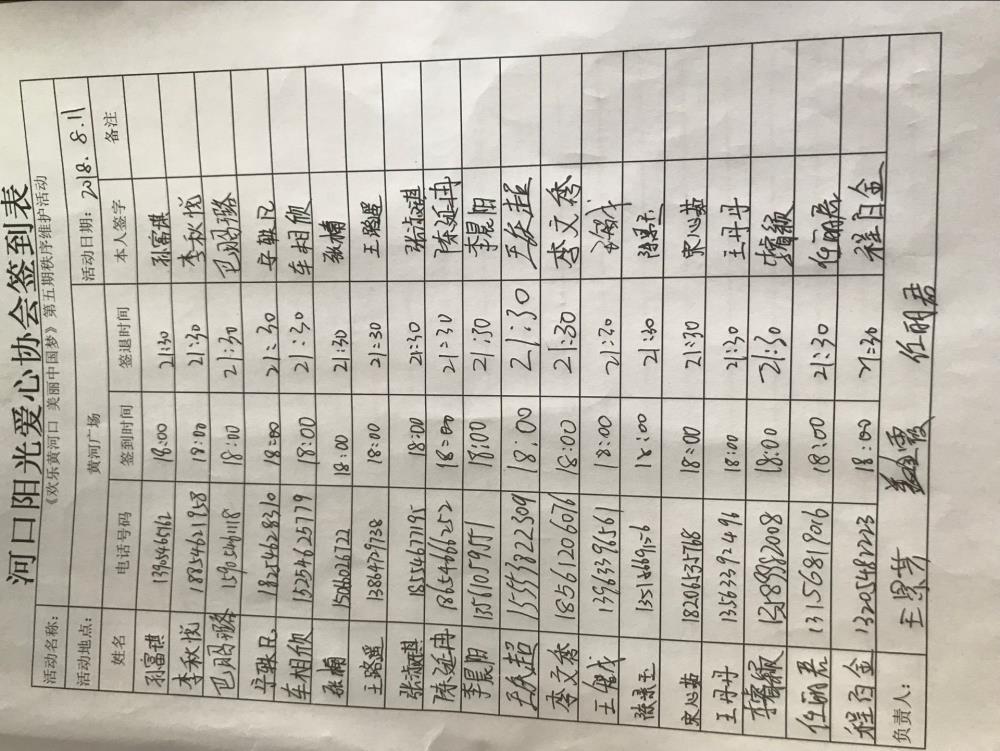 河口阳光爱心协会签到表
活动名称： 《欢乐黄河口 美丽中国梦》第五期秩序维护活动
活动地点： 黄河广场 活动日期： 2018.8.11
姓名 电话号码 签到时间 签退时间 本人签字 备注
孙富祺 13905465162 18:00 21:30 孙富祺
李秋悦 18854621958 18:00 21:30 李秋悦
15905461118 18:00 21:30
18254628310 18:00 21:30
车相欣 15254625779 18:00 21:30 车相欣
张楠 15066026722 18:00 21:30 张楠
王路遥 13864729738 18:00 21:30 王路遥
张淑祺 18554677195 18:00 21:30 张淑祺
陈延冉 18654666252 18:00 21:30 陈延冉
李晨阳 13561059551 18:00 21:30 李晨阳
王庆超 15553822309 18:00 21:30 王庆超
李文秀 18561206076 18:00 21:30 李文秀
1396339561 18:00 21:30
18:00 21:30
宋心茹 18206535768 18:00 21:30 宋心茹
王丹丹 13563392496 18:00 21:30 王丹丹
18:00 21:30
任丽君 13156819016 18:00 21:30 任丽君
程白金 13205482223 18:00 21:30 程白金
负责人： 任丽君